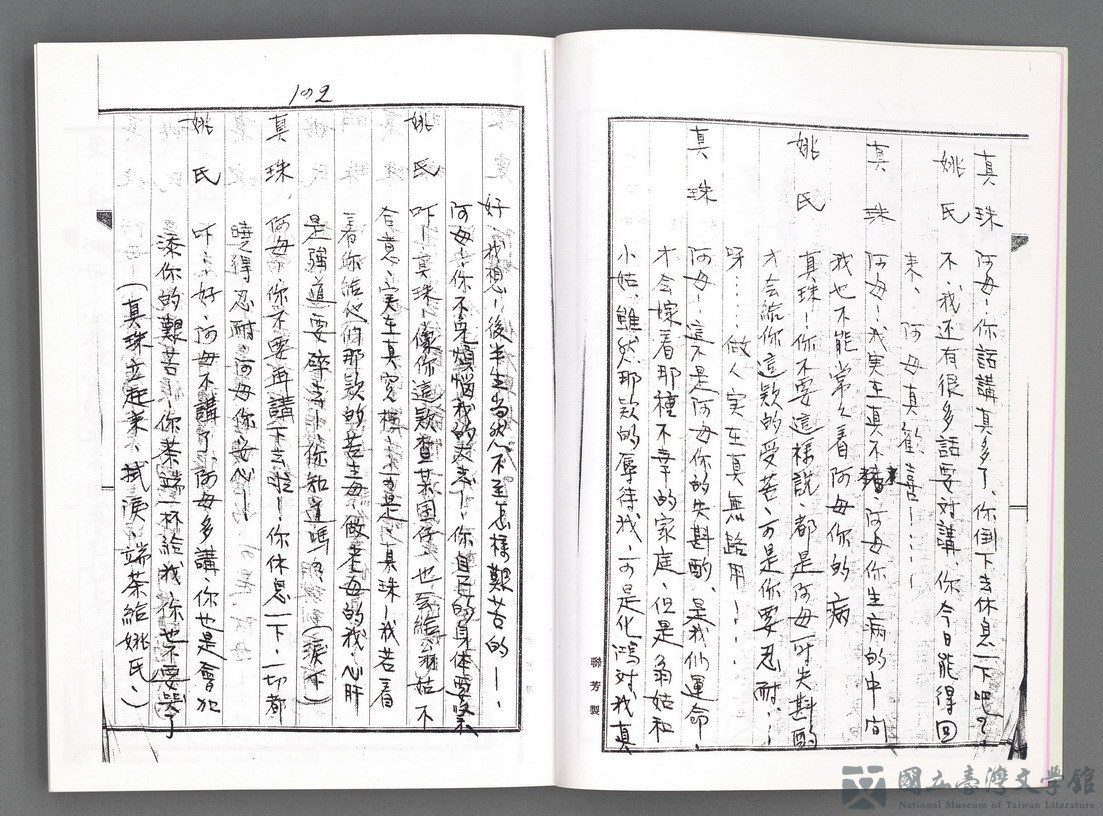 真珠 阿母！你話講真多了、你倒下去休息一下吧！
姚氏 不、我还有很多話要对講、你今日能得回
來、阿母真歡喜！
真珠 阿母！我実在真不 阿母你生病的中间
我也不能常々看阿母你的病
姚氏 真珠！你不要這樣說、都是阿母一时失斟酌
才会給你這款的受苦、可是你要忍耐、！
呀……做人実在真無路用！
真珠 阿母！這不是阿母你的失斟酌、是我们運命！
才会嫁着那種不幸的家庭、但是翁姑和
小姑、雖然那款的辱待我、可是化鴻对我真
聯芳製
102
好、我想！後半生当然不至怎樣艱苦的！
阿母！你不免煩惱我的 你自己的身体要緊
姚氏 吓！真珠！像你這款 也会給翁姑不
合意、実在真冤 可是、真珠！我若看
着你給他们那款的苦 做老母的我、心肝
是強 要碎去！你知道嗎？（淚下）
真珠 阿母、你不要再講下去啦！你休息一下、一切都
曉得忍耐、阿母你安心！
姚氏 吓！好、阿母不講了、阿母多講、你也是會
添你的艱苦、你茶端一杯給我、你也不要哭了
（真珠立起來、拭淚、端茶給姚氏、）
國立臺灣文學館
National Museum of Taiwan Literature